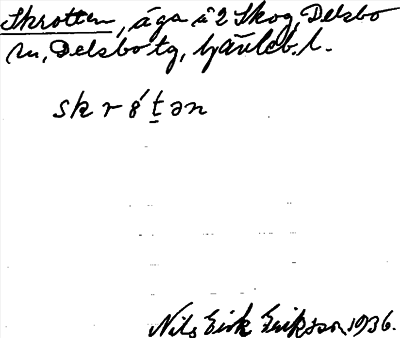 Skrotten, äga å 2 Skog, Delsbo
sn, Delsbo tg, Gävleb. l.
skrótən
Nils Eirk Eriksson, 1936.